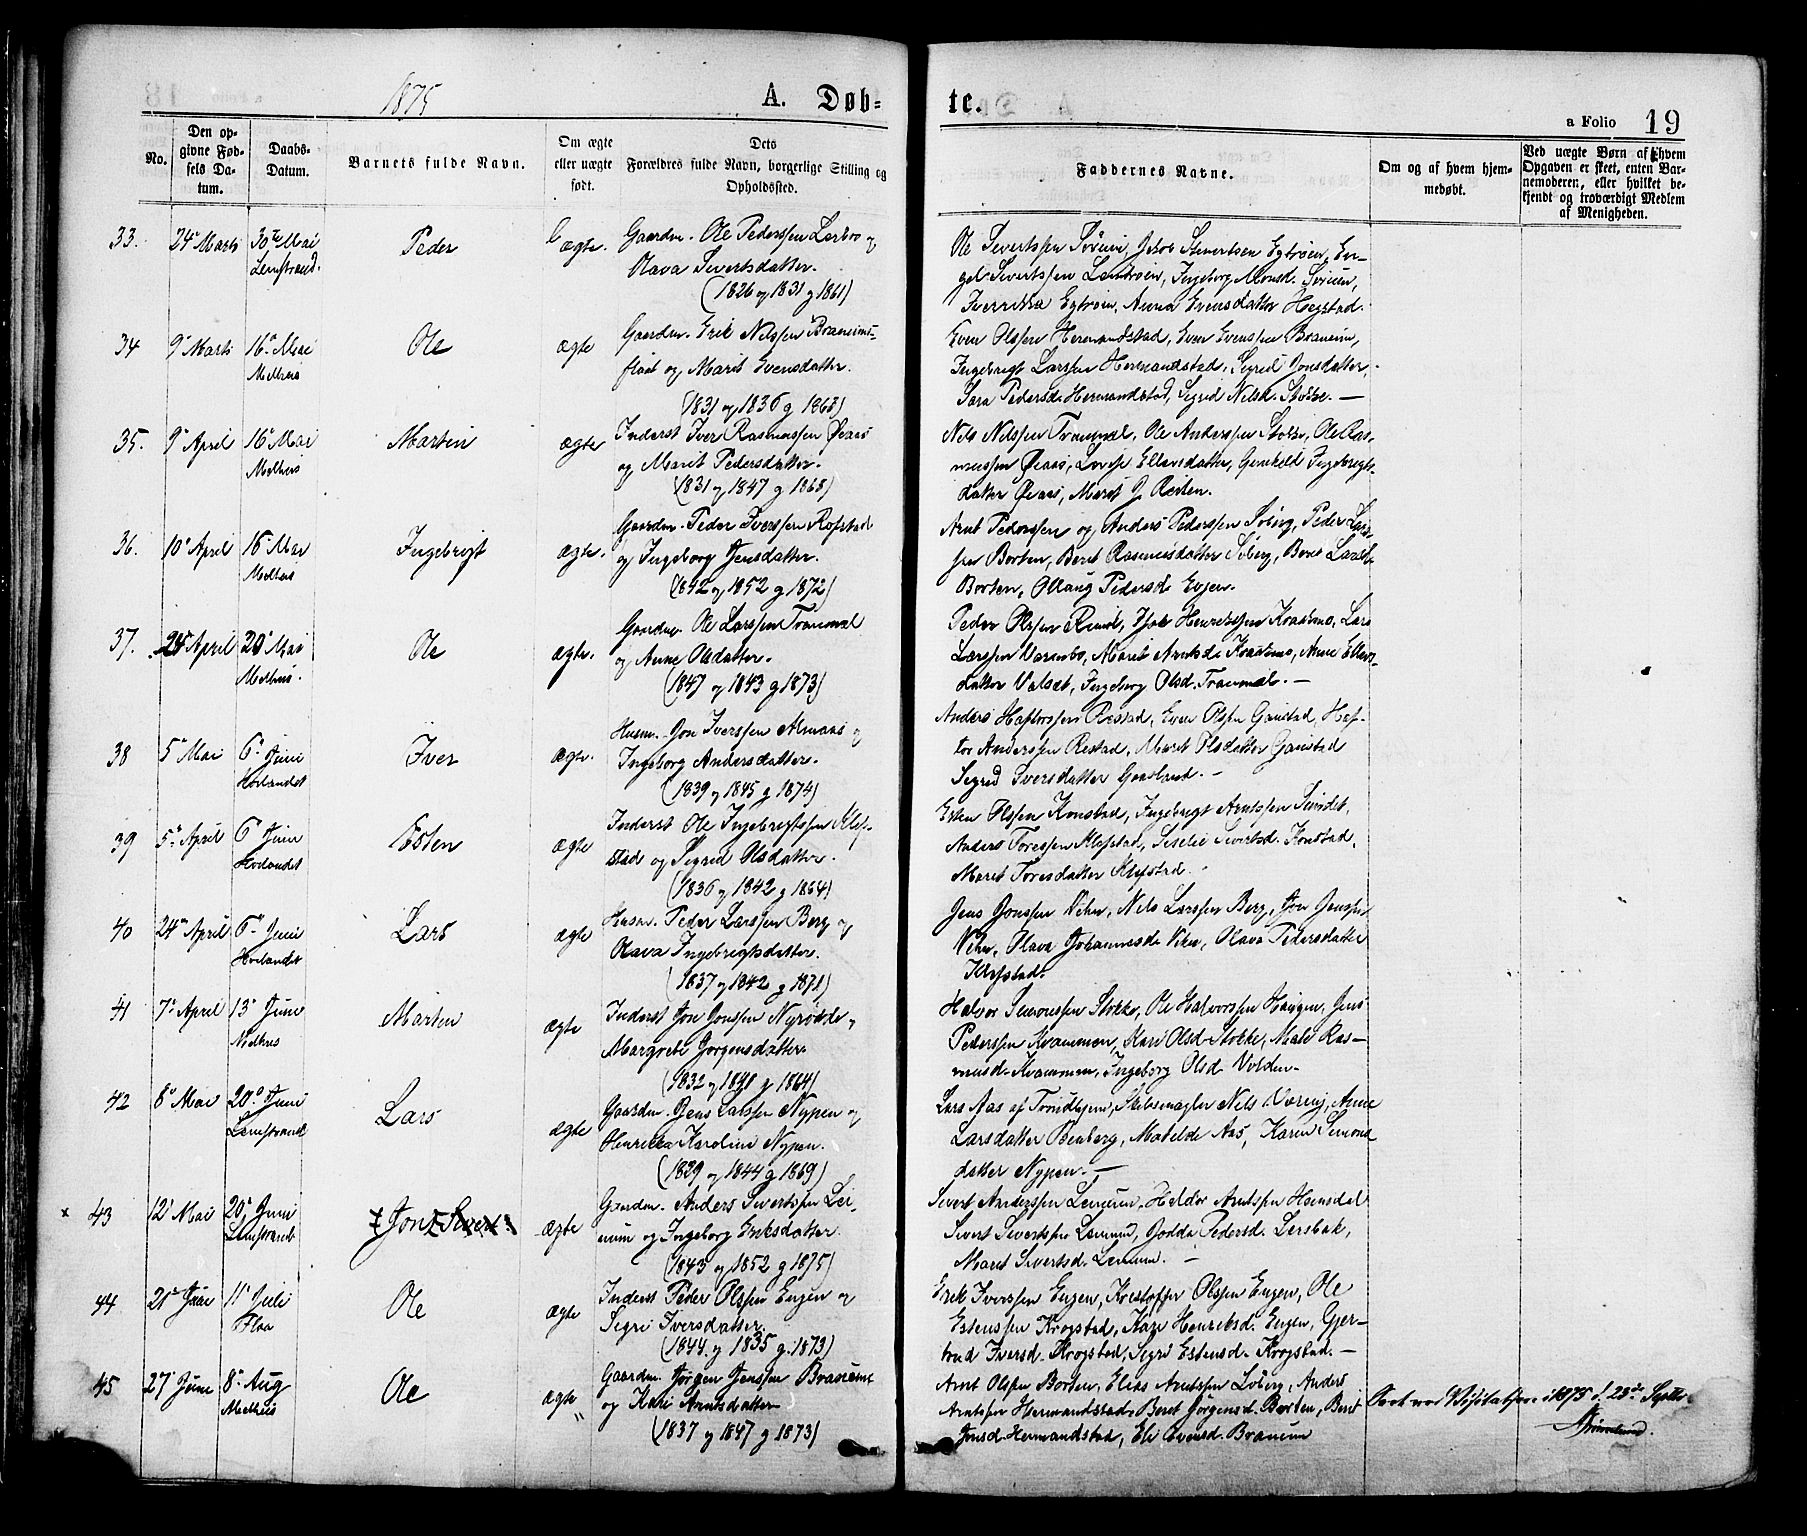 1875
A. Døb=
te.
a Folio 19
No.
Den op-
givne Fød-
sels Da-
tum.
Daabs-
Datum.
Barnets fulde Navn.
Om ægte
eller uægte
født.
Dets
Forældres fulde Navn, borgerlige Stilling og
Opholdssted.
Faddernes Navne.
Om og af hvem hjem-
medøbt.
Ved uægte Børn af hvem
Opgaven er skeet, enten Bar-
nemoderen, eller hvilket be-
kjendt og troværdigt Medlem
af Menigheden.
33. 24 Marts 30te Mai
Lenstrand.
Peder
ægte.
Gaardm. Ole Pederssen Lerbro og
Olava Sivertsdatter.
(1826 og 1831 g 1861)
Ole Sivertssen
gel Sivertssen Ingeborg Monsd.
Anna Evensdatter Hegstad.
34 9 Marts 16 Mai
Melhus
Ole
ægte
Gaardm. Erik Nilssen Braneims-
flaat og Marit Evensdatter.
(1831 og 1836 g 1868)
Even Olssen Hermandstad, Even Evenssen Braneim,
Ingebrigt Larssen Hermandstad, Sigrid Jonsdatter,
Sara Pedersd. Hermandstad, Sigrid Nilsd.
35. 9 April 16 Mai
Melhus
Martin
ægte
Inderst Iver Rasmussen Øiaas
og Marit Pedersdatter.
(1831 og 1847 g 1868)
Nils Nilssen Tranmæl, Ole Anderssen Ole Ras-
mussen Øiaas, Ellevsdatter, Gunhild Ingebrigts-
datter Øiaas, Marit J.
36. 10 April 16 Mai
Melhus
Ingebrigt
ægte.
Gaardm. Peder Iverssen Rofstad
og Ingeborg Jensdatter.
(1842 og 1852 g 1872)
Arnt Pederssen og Anders Pederssen Søberg, Peder Lars-
sen Borten, Beret Rasmusdatter Søberg, Beret Larsd.
Borten, Ollaug Pedersd. Evjen.
37. 24 April 20 Mai
Melhus.
Ole
ægte.
Gaardm. Ole Larssen Tranmæl
og Anne Olsdatter.
(1847 og 1843 g 1873)
Peder Olssen Isak Henrikssen Kvasmo, Lars
Larssen Varmbo, Marit Arntsd. Kvasmo, Anne Ellevs-
datter Valset, Ingeborg Olsd. Tranmæl. —
38 5 Mai 6 Juni
Horlandet
Iver
ægte.
Husm. Jon Iverssen Almaas og
Ingeborg Andersdatter.
(1839 og 1845 g 1874)
Anders Haftorssen Restad, Even Olssen Gaustad, Haf-
tor Anderssen Restad, Marit Olsdatter Gaustad
Sigrid Iversdatter Gaasland. —
39 5 April 6 Juni
Horlandet
Esten
ægte
Inderst Ole Ingebrigtssen Klef-
stad og Sigrid Olsdatter.
(1836 og 1842 g 1864)
Esten Olssen Konstad, Ingebrigt Arntssen
Anders Toressen Klefstad, Siselie Sivertsd. Konstad,
Marit Toresdatter Klefstad.
40 24 April 6 Juni
Horlandet
Lars
ægte
Husm. Peder Larssen Berg og
Olava Ingebrigtsdatter.
(1837 og 1842 g 1871)
Jens Jonssen Nils Larssen Berg, Jon Jenssen
Olava Johannesd. Olava Pedersdatter
Klefstad.
41 7 April 13 Juni
Melhus
Marten
ægte
Inderst Jon Jonssen Nyrødde og
Margrete Jørgensdatter.
(1832 og 1841 g 1864)
Halvor Simonssen Stokke, Ole Halvorssen Haugen, Jens
Pederssen Kvammen, Kari Olsd. Stokke, Malé Ras-
musd. Kvammen, Ingeborg Olsd. Volden.
42 8 Mai 20 Juni
Lenstrand
Lars
ægte
Gaardm. Jens Larssen Nypen og
Henrikka Karoline Nypen.
(1839 og 1844 g 1869)
Lars Aas af Trondhjem, Skibsmægler Nils Anne
Larsdatter Benberg, Matilde Aas, Karen Simons-
datter Nypen. —
× 43 12 Mai 20 Juni
Lenstrand
Jon
ægte
Gaardm. Anders Sivertssen Lei-
num og Ingeborg Eriksdatter.
(1843 og 1852 g 1875)
Sivert Anderssen Leinum, Haldor Arntssen
Sivert Sivertssen Leinum, Godda Pedersd. Lersbak,
Marit Sivertsd. Leinum. —
44 21 Juni 11 Juli
Flaa
Ole
ægte
Inderst Peder Olssen Eugen og
Sigri Iversdatter.
(1844 og 1835 g. 1873)
Erik Iverssen Eugen, Kristoffer Olssen Eugen, Ole
Estenssen Krogstad, Kari Henriksd. Eugen, Gjer-
trud Iversd. Krogstad, Sigri Estensd. Krogstad. —
45 27 Juni 8 Aug
Melhus
Ole
ægte
Gaardm. Jørgen Jenssen Braneim
og Kari Arntsdatter
(1837 og 1847 g 1873)
Arnt Olssen Borten, Elias Arntssen Søberg, Anders
Arntssen Hermandstad, Beret Jørgensd. Borten, Berit
Jonsd. Hermandstad, Eli Evensd. Braneim
Seet ved Visitatsen i 1875 d. 23de Septbr.